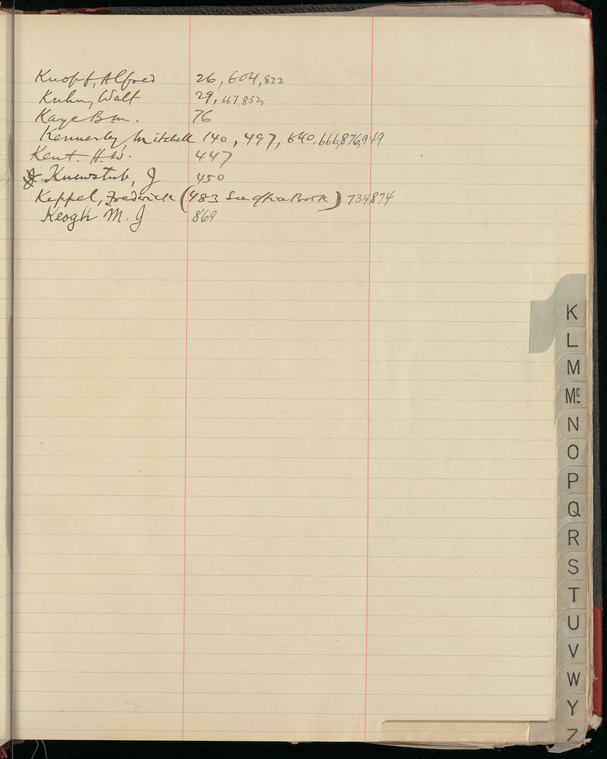 Knopf, Alfred 26, 604, 822
Kuhn, Walt 29, 667, 852,
Kaye Bm. 76
Kennerley, Mitchell 140, 497, 640, 666, 876, 949
Kent. H.W. 447
Knewstub, J 450
Keppel, Frederick (483 See Office Book) 734, 874
Keogh M. J 869
K
L
M
Mc
N
O
P
Q
R
S
T
U
V
W
Y
Z